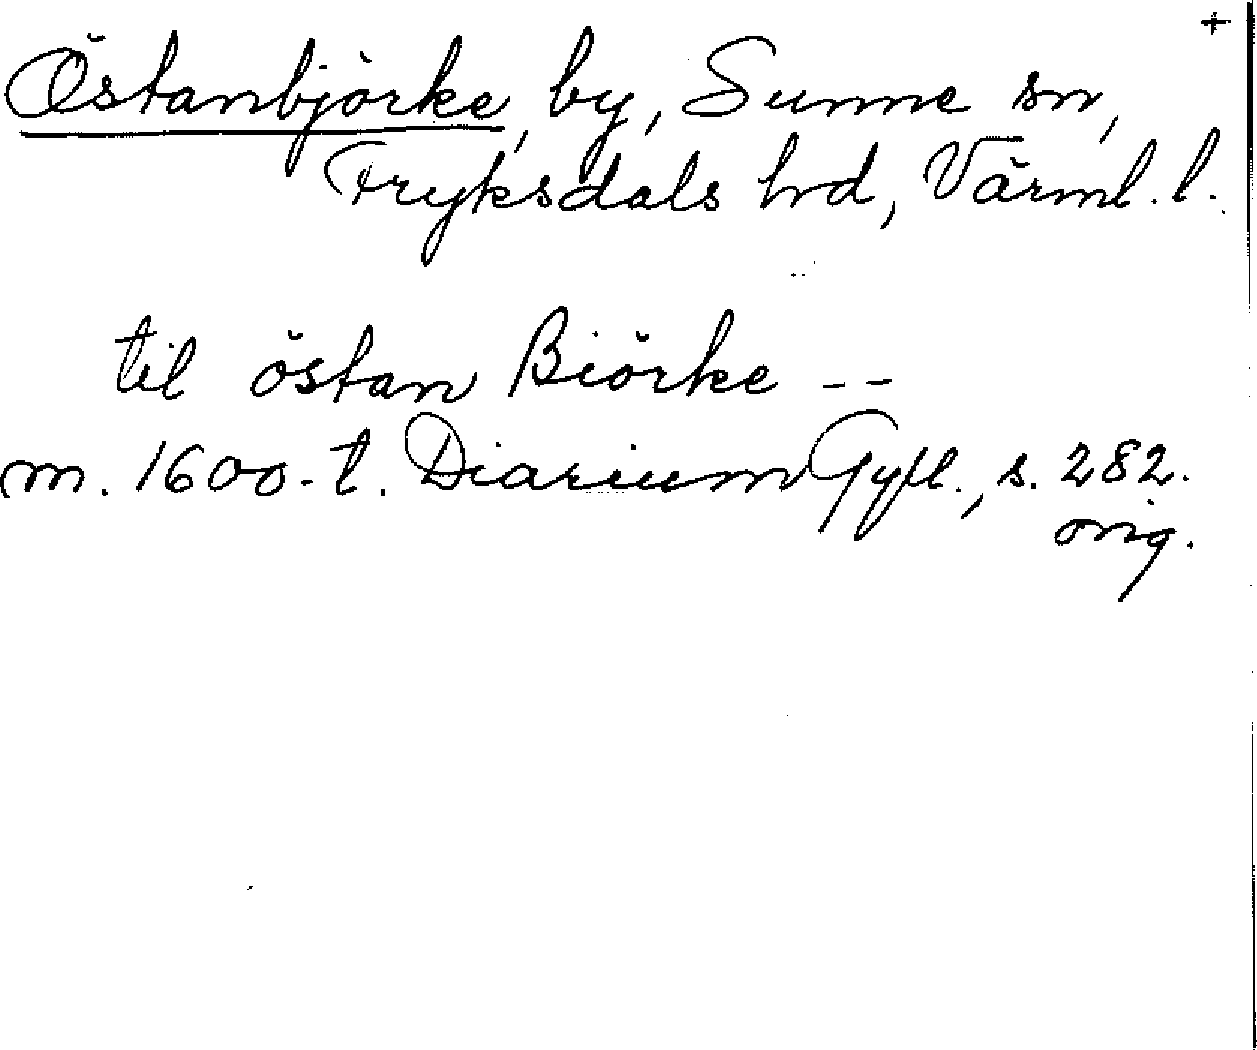 +
Östanbjörke, by, Sunne sn,
Fryksdals hd, Värml. l.
til östan Biörke --
m. 1600-t. Diarium Gyll., s. 282.
orig.